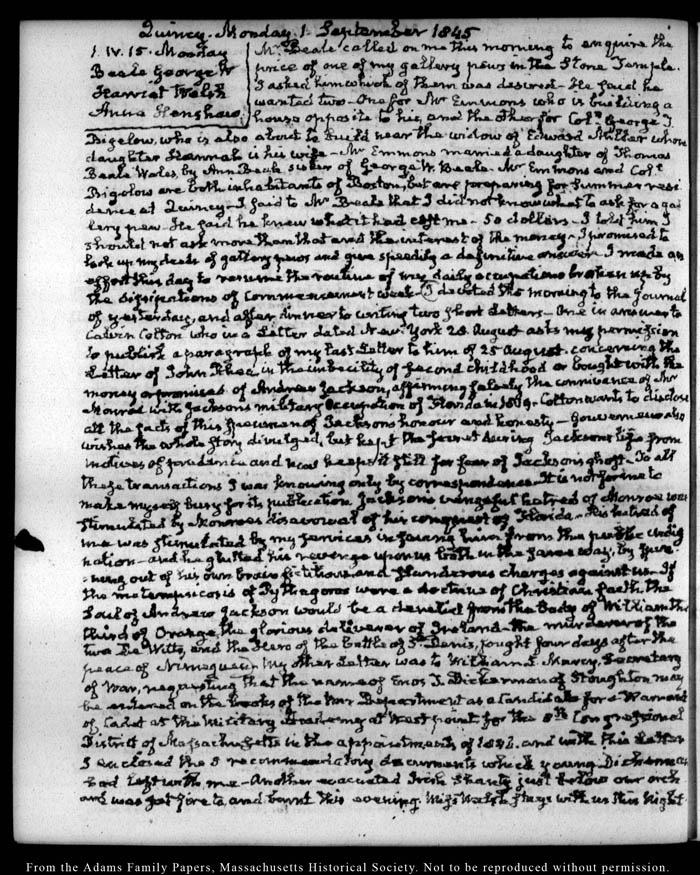 Quincy. Monday 1. September 1845
1. IV. 15. Monday
Beale George W
Harriet Welsh
Anna Henshaw.
Mr Beale called on me this morning to enquire the
price of one of my gallery pews in the Stone Temple.
I asked him which of them was desired. He said he
wanted two. One for Mr Emmons who is building a
house opposite to his, and the other for Coll. George T.
Bigelow, who is also about to build near the widow of Edward Miller whose
daughter Hannah is his wife. Mr Emmons married a daughter of Thomas
Beale Wales, by Ann Beale sister of George W. Beale. Mr Emmons and Coll.
Bigelow are both inhabitants of Boston, but are preparing for Summer resi
dence at Quincy. I said to Mr Beale that I did not know what to ask for a gal
lery pew. He said he knew what it had cost me. 50 dollars. I told him I
should not ask more than that and the interest of the money. I promised to
look up my deeds of gallery pews and give speedily a definitive answer. I made an
effort this day to resume the routine of my daily occupations broken up by
the dissipations of Commencement week. I devoted the morning to the Journal
of yesterday, and after dinner to writing two short Letters. One in answer to
Calvin Colton who in a Letter dated New York 28 August asks my permission
to publish a paragraph of my last Letter to him of 25 August. concerning the
Letter of John Rhea, in the imbecility of second childhood or bought with the
money or promises of Andrew Jackson, affirming falsely the connivance of Mr
Monroe with Jacksons military occupation of Florida in 1819. Colton wants to disclose
all the facts of this specimen of Jacksons honour and honesty. Gouverneur also
wishes the whole story divulged, but kept the secret during Jacksons life from
motives of prudence and now keeps it still for fear of Jacksons ghost. To all
these transactions I was knowing only by correspondence. It is not for me to
make myself busy for its publication. Jacksons vengeful hatred of Monroe was
stimulated by Monroes disavowal of his conquest of Florida. His hatred of
me was stimulated by my services in saving him from the public indig
nation and he glutted his revenge upon us both in the same way, by
out of his own brain fictitious and slanderous charges against us. If
the metempsycosis of Pythagoras were a doctrine of Christian faith the
Soul of Andrew Jackson would be from the Body of William the
third of Orange, the glorious deliverer of Ireland the murderer of the
two De Witts, and the Hero of the battle of St Denis, fought four days after the
peace of Nimeguen. My other Letter was to William L. Marcy, Secretary
of War, requesting that the name of Enos T. Dickerman of Stoughton may
be entered on the books of the War Department as a Candidate for a Warrant
of Cadet at the Military Academy at West point for the 8th Congressional
District of Massachusetts in the appointments of and with this Letter
I enclosed the 3 recommendatory documents which young Dickerman
had left with me. Another evacuated Irish Shanty just below our orch
ard was set fire to, and burnt this evening. Miss Welsh stays with us this night
From the Adams Family Papers, Massachusetts Historical Society. Not to be reproduced without permission.